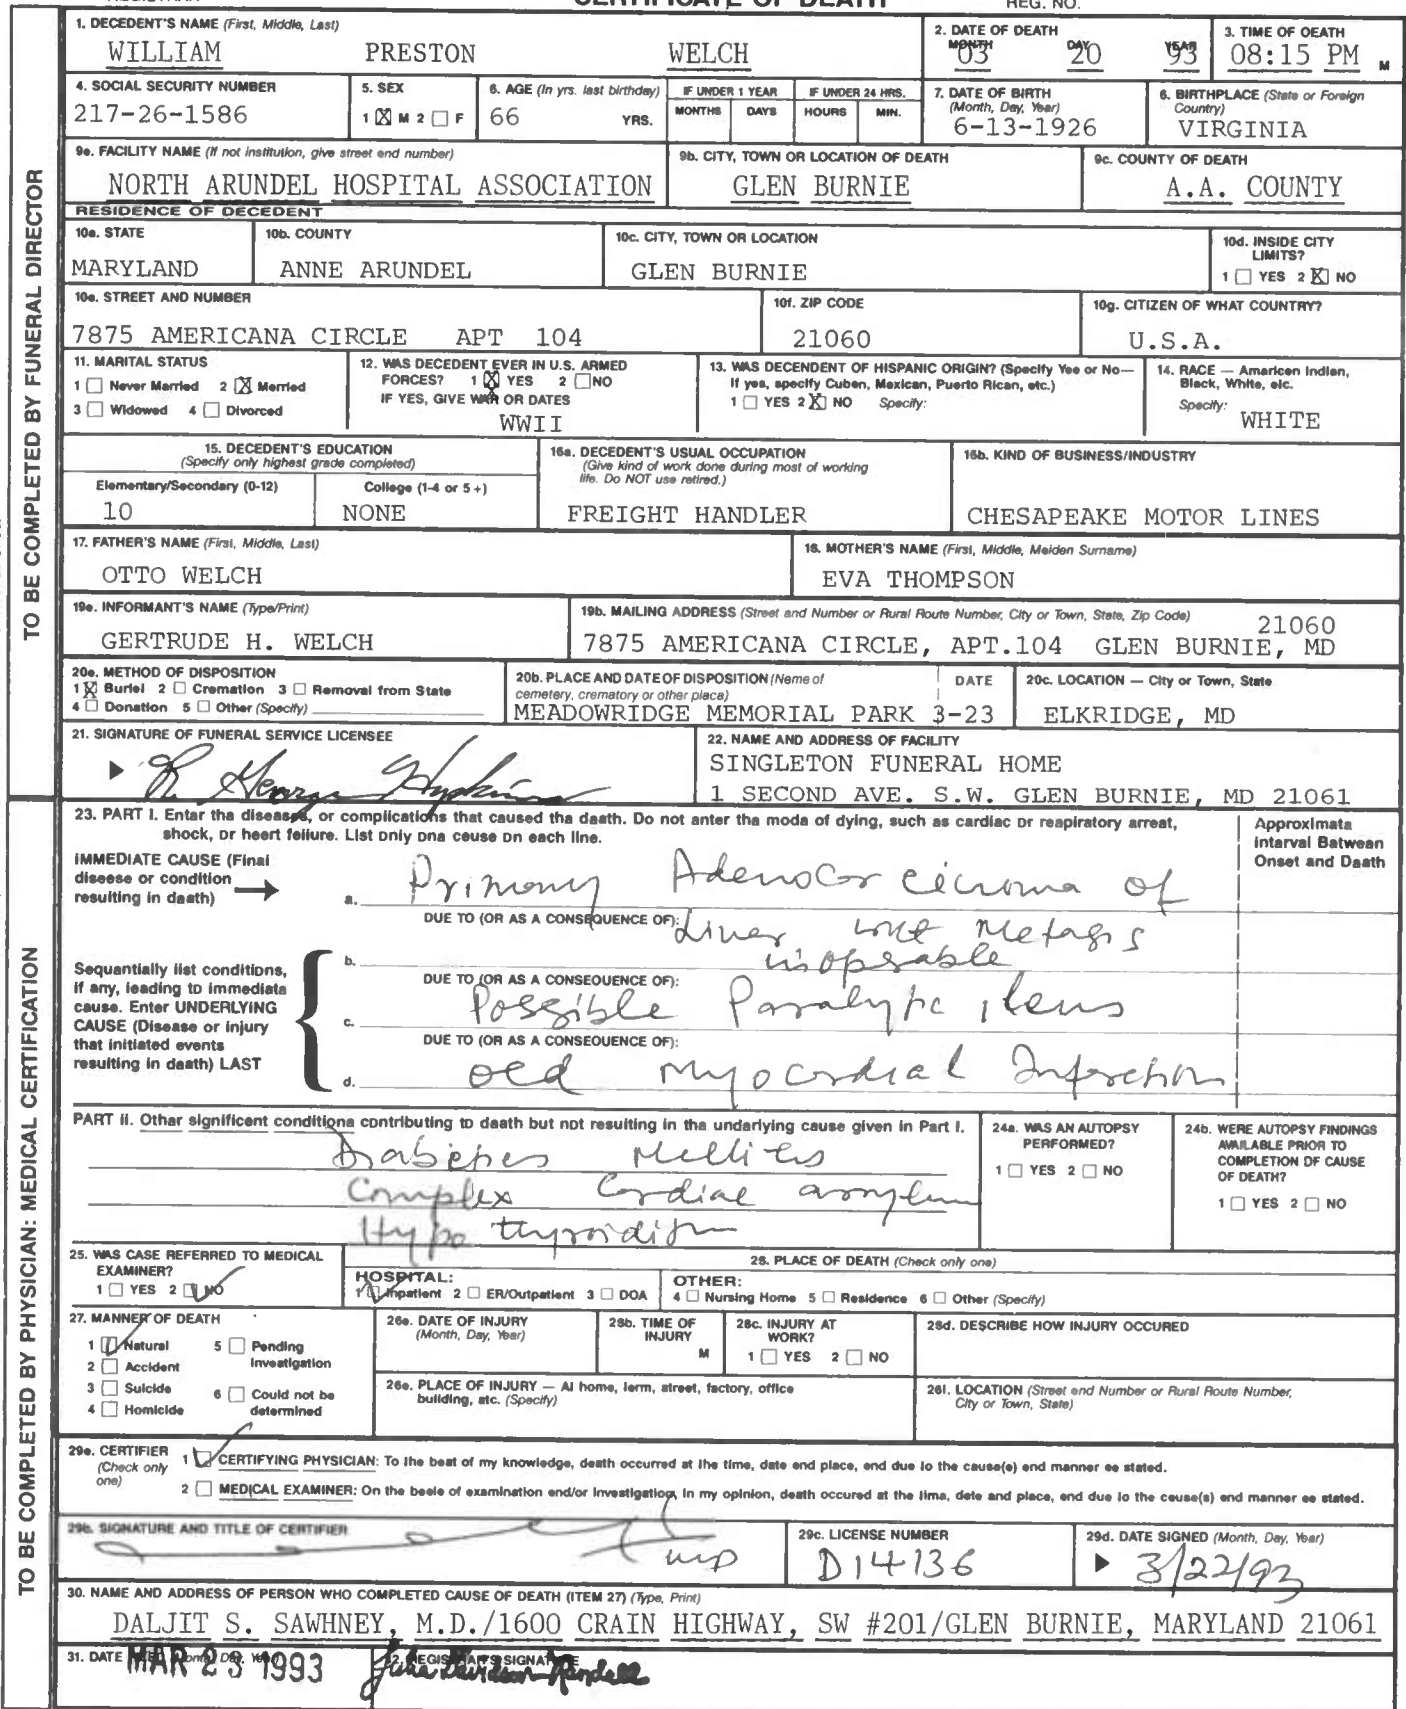 CERTIFICATE OF DEATH
REG. NO.
1. DECEDENT'S NAME (First, Middle, Last)
WILLIAM PRESTON WELCH
2. DATE OF DEATH
MONTH DAY YEAR
03 20 93
3. TIME OF DEATH
08:15 PM M
4. SOCIAL SECURITY NUMBER
217-26-1586
5. SEX
1 ☒ M 2 ☐ F
6. AGE (In yrs. last birthday)
66 YRS.
IF UNDER 1 YEAR
MONTHS DAYS
IF UNDER 24 HRS.
HOURS MIN.
7. DATE OF BIRTH
(Month, Day, Year)
6-13-1926
8. BIRTHPLACE (State or Foreign
Country)
VIRGINIA
9a. FACILITY NAME (If not institution, give street and number)
NORTH ARUNDEL HOSPITAL ASSOCIATION
9b. CITY, TOWN OR LOCATION OF DEATH
GLEN BURNIE
9c. COUNTY OF DEATH
A.A. COUNTY
TO BE COMPLETED BY FUNERAL DIRECTOR
RESIDENCE OF DECEDENT
10a. STATE
MARYLAND
10b. COUNTY
ANNE ARUNDEL
10c. CITY, TOWN OR LOCATION
GLEN BURNIE
10d. INSIDE CITY
LIMITS?
1 ☐ YES 2 ☒ NO
10e. STREET AND NUMBER
7875 AMERICANA CIRCLE APT 104
10f. ZIP CODE
21060
10g. CITIZEN OF WHAT COUNTRY?
U.S.A.
11. MARITAL STATUS
1 ☐ Never Married 2 ☒ Married
3 ☐ Widowed 4 ☐ Divorced
12. WAS DECEDENT EVER IN U.S. ARMED
FORCES? 1 ☒ YES 2 ☐ NO
IF YES, GIVE WAR OR DATES
WWII
13. WAS DECENDENT OF HISPANIC ORIGIN? (Specify Yes or No—
If yes, specify Cuban, Mexican, Puerto Rican, etc.)
1 ☐ YES 2 ☒ NO Specify:
14. RACE — American Indian,
Black, White, etc.
Specify:
WHITE
15. DECEDENT'S EDUCATION
(Specify only highest grade completed)
Elementary/Secondary (0-12)
10
College (1-4 or 5+)
NONE
16a. DECEDENT'S USUAL OCCUPATION
(Give kind of work done during most of working
life. Do NOT use retired.)
FREIGHT HANDLER
16b. KIND OF BUSINESS/INDUSTRY
CHESAPEAKE MOTOR LINES
17. FATHER'S NAME (First, Middle, Last)
OTTO WELCH
18. MOTHER'S NAME (First, Middle, Maiden Surname)
EVA THOMPSON
19a. INFORMANT'S NAME (Type/Print)
GERTRUDE H. WELCH
19b. MAILING ADDRESS (Street and Number or Rural Route Number, City or Town, State, Zip Code)
21060
7875 AMERICANA CIRCLE, APT.104 GLEN BURNIE, MD
20a. METHOD OF DISPOSITION
1 ☒ Burial 2 ☐ Cremation 3 ☐ Removal from State
4 ☐ Donation 5 ☐ Other (Specify)
20b. PLACE AND DATE OF DISPOSITION (Name of
cemetery, crematory or other place)
DATE
MEADOWRIDGE MEMORIAL PARK 3-23
20c. LOCATION — City or Town, State
ELKRIDGE, MD
21. SIGNATURE OF FUNERAL SERVICE LICENSEE
R. George Hopkins
22. NAME AND ADDRESS OF FACILITY
SINGLETON FUNERAL HOME
1 SECOND AVE. S.W. GLEN BURNIE, MD 21061
TO BE COMPLETED BY PHYSICIAN: MEDICAL CERTIFICATION
23. PART I. Enter the diseases, or complications that caused the death. Do not enter the mode of dying, such as cardiac or respiratory arrest,
shock, or heart failure. List only one cause on each line.
Approximate
Interval Between
Onset and Death
IMMEDIATE CAUSE (Final
disease or condition
resulting in death)
a. Primary Adenocarcinoma of
DUE TO (OR AS A CONSEQUENCE OF):
Liver with Metasis
b. inoperable
DUE TO (OR AS A CONSEQUENCE OF):
Sequentially list conditions,
if any, leading to immediate
cause. Enter UNDERLYING
CAUSE (Disease or injury
that initiated events
resulting in death) LAST
c. Possible Paralytic ileus
DUE TO (OR AS A CONSEQUENCE OF):
d. old Myocardial Infarction
PART II. Other significant conditions contributing to death but not resulting in the underlying cause given in Part I.
Diabetes Mellitus
Complex Cardiac
Hypothyroidism
24a. WAS AN AUTOPSY
PERFORMED?
1 ☐ YES 2 ☐ NO
24b. WERE AUTOPSY FINDINGS
AVAILABLE PRIOR TO
COMPLETION OF CAUSE
OF DEATH?
1 ☐ YES 2 ☐ NO
25. WAS CASE REFERRED TO MEDICAL
EXAMINER?
1 ☐ YES 2 ☑ NO
26. PLACE OF DEATH (Check only one)
HOSPITAL:
1 ☑ Inpatient 2 ☐ ER/Outpatient 3 ☐ DOA
OTHER:
4 ☐ Nursing Home 5 ☐ Residence 6 ☐ Other (Specify)
27. MANNER OF DEATH
1 ☑ Natural 5 ☐ Pending
Investigation
2 ☐ Accident
3 ☐ Suicide 6 ☐ Could not be
determined
4 ☐ Homicide
28a. DATE OF INJURY
(Month, Day, Year)
28b. TIME OF
INJURY
M
28c. INJURY AT
WORK?
1 ☐ YES 2 ☐ NO
28d. DESCRIBE HOW INJURY OCCURED
28e. PLACE OF INJURY — At home, farm, street, factory, office
building, etc. (Specify)
28f. LOCATION (Street and Number or Rural Route Number,
City or Town, State)
29a. CERTIFIER
(Check only
one)
1 ☑ CERTIFYING PHYSICIAN: To the best of my knowledge, death occurred at the time, date and place, and due to the cause(s) and manner as stated.
2 ☐ MEDICAL EXAMINER: On the basis of examination and/or investigation, in my opinion, death occured at the time, date and place, and due to the cause(s) and manner as stated.
29b. SIGNATURE AND TITLE OF CERTIFIER
MD
29c. LICENSE NUMBER
D14136
29d. DATE SIGNED (Month, Day, Year)
3/22/93
30. NAME AND ADDRESS OF PERSON WHO COMPLETED CAUSE OF DEATH (ITEM 27) (Type, Print)
DALJIT S. SAWHNEY, M.D./1600 CRAIN HIGHWAY, SW #201/GLEN BURNIE, MARYLAND 21061
31. DATE
MAR 23 1993
32. REGISTRAR'S SIGNATURE
Julia Davidson-Randall